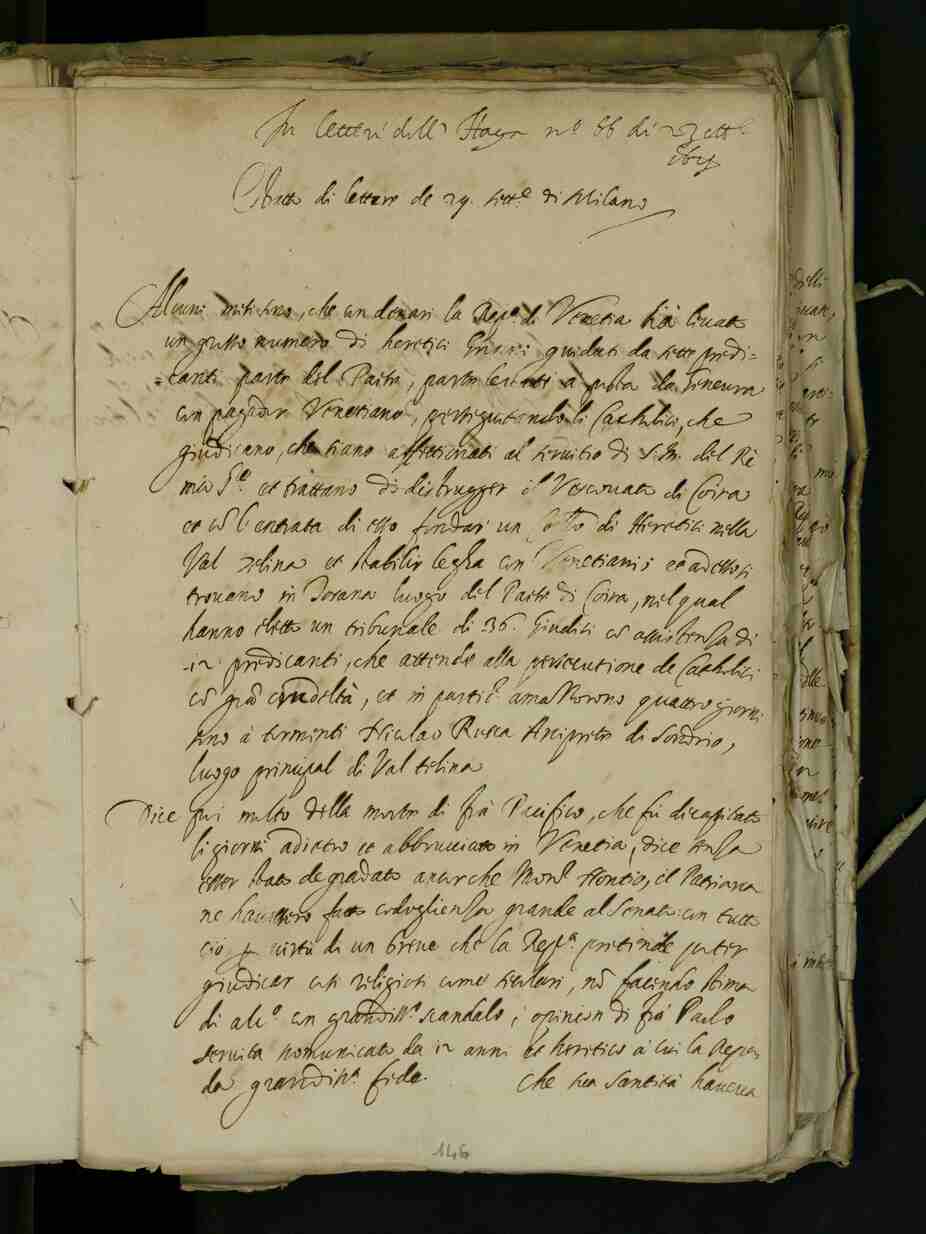 In lettere dell' Haya nº 66 di 23 ott.
Estratto di lettere de 29. sett.e di Milano
Alcuni mesi sono, che con denari la Rep.ca di Venetia hà levato
un grosso numero di heretici Grisoni guidati da sette predi=
=canti parte del Paese, parte levati a posta da Geneura
con pagador Venetiano, perseguitando li Catholici, che
giudicano, che siano affettionati al servitio di S. M. del Rè
mio S.re et trattano di distrugger il Vescovato di Coira
et cõ l'entrata di esso fondar un di Heretici nella
Val Telina et stabilir legha con Venetiani; et adesso si
trovano in Tosana luogo del Paese di Coira, nel qual
hanno eletto un tribunale di 36. Giudici cõ assistenza di
12 predicanti, che attende alla persecutione de Catholici
cõ grã crudeltà, et in partic.re amazzorono quattro giorni
sono à tormenti Nicolao Rusca Arciprete di Sondrio,
luogo principal di Val telina
Dice poi molto della morte di frà Pacifico, che fù dicapitato
li giorni adietro et abbrucciato in Venetia, dice senza
esser stato degradato ancorche Mons.r Nontio, et Patriarca
ne havessero fatto condoglienza grande al Senato: con tutto
ciò p virtù di un breve che la Rep.ca pretende poter
giudicar così religiosi come secolari, nõ facendo stima
di alc.o con grandiss.o scandalo, opinion di frà Paolo
servita scomunicato da 12 anni et heretico à cui la Repu
da grandiss.a fede. Che sua Santità haveva
146